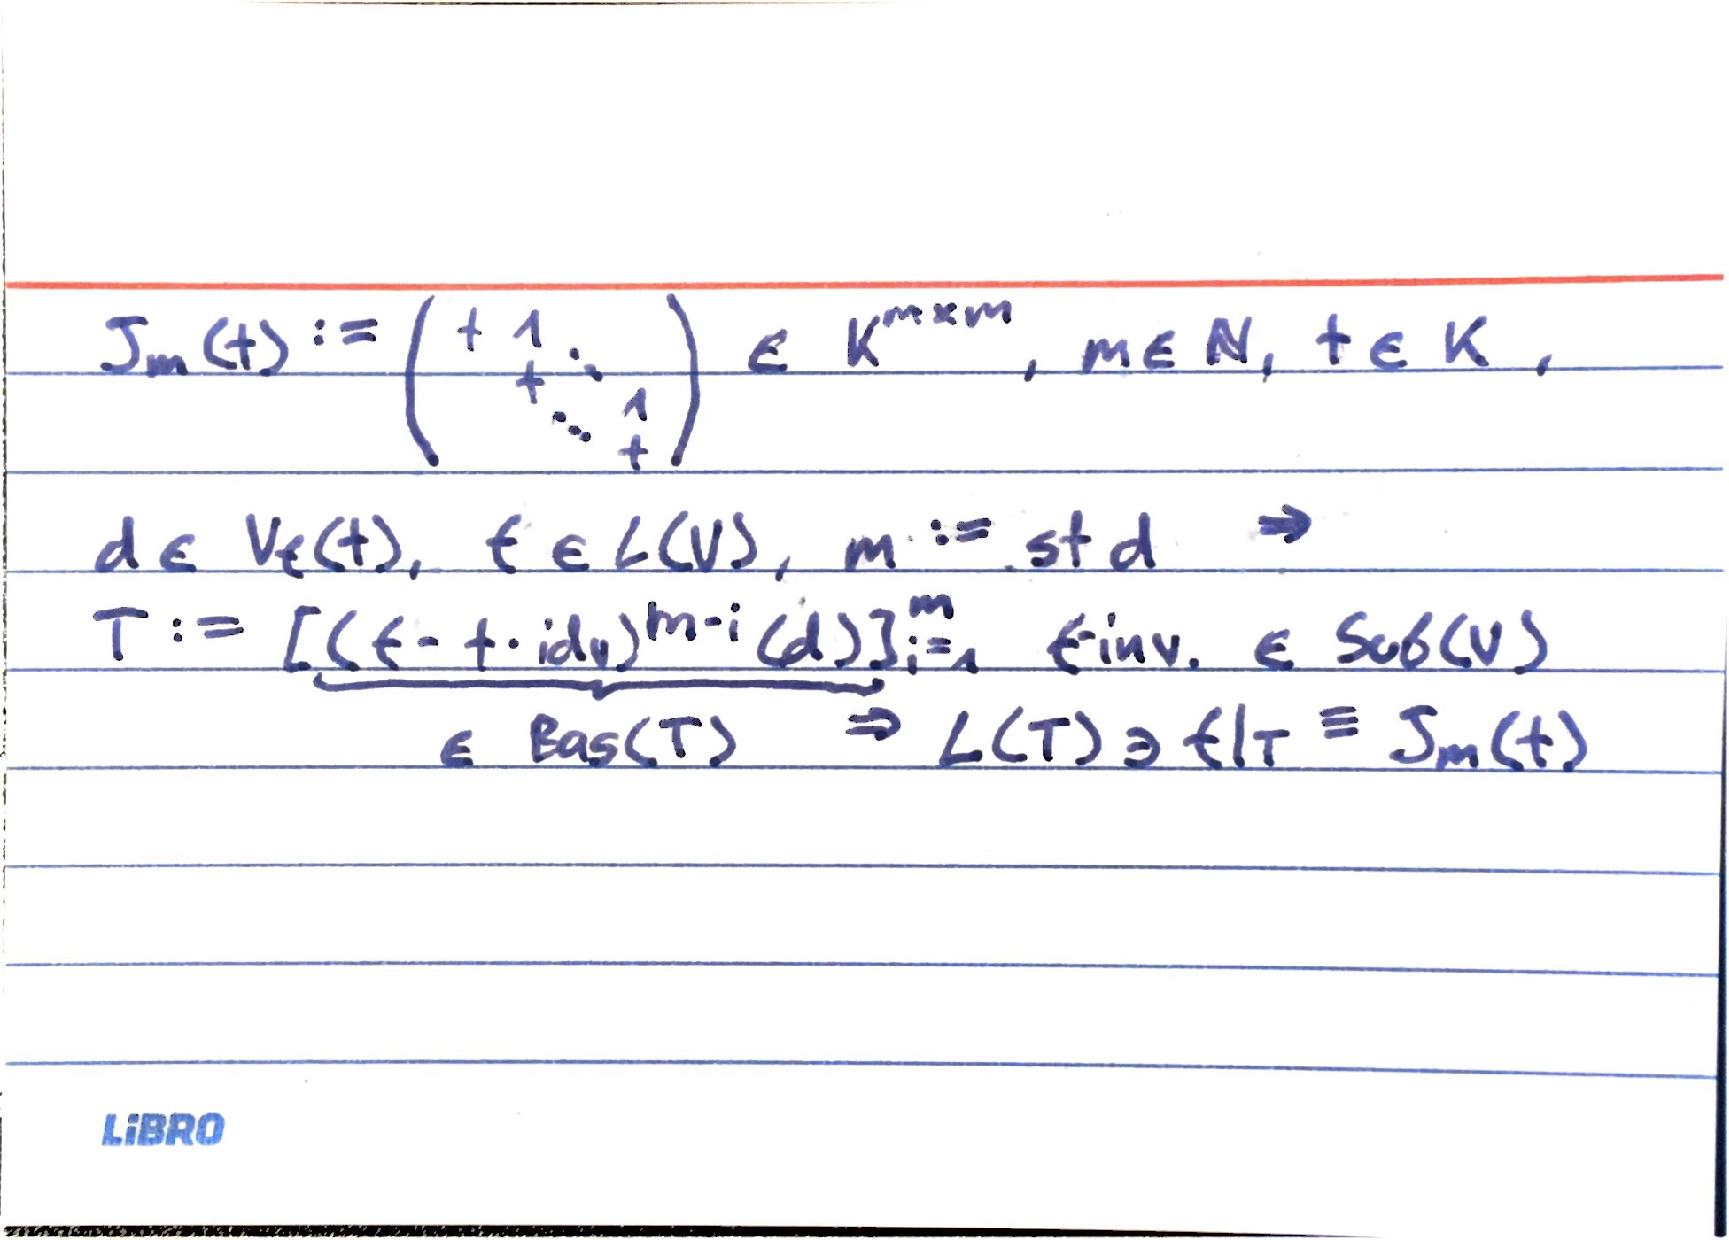 J_m(t) := ( t 1 ⋱ t ⋱ 1 t ) ∈ K^{m×m}, m ∈ ℕ, t ∈ K,
d ∈ V_f(t), f ∈ L(V), m := st d ⇒
T := [(f - t · id_V)^{m-i} (d)]_{i=1}^m f-inv. ∈ Sub(V)
∈ Bas(T) ⇒ L(T) ∋ f|_T ≡ J_m(t)
LiBRO